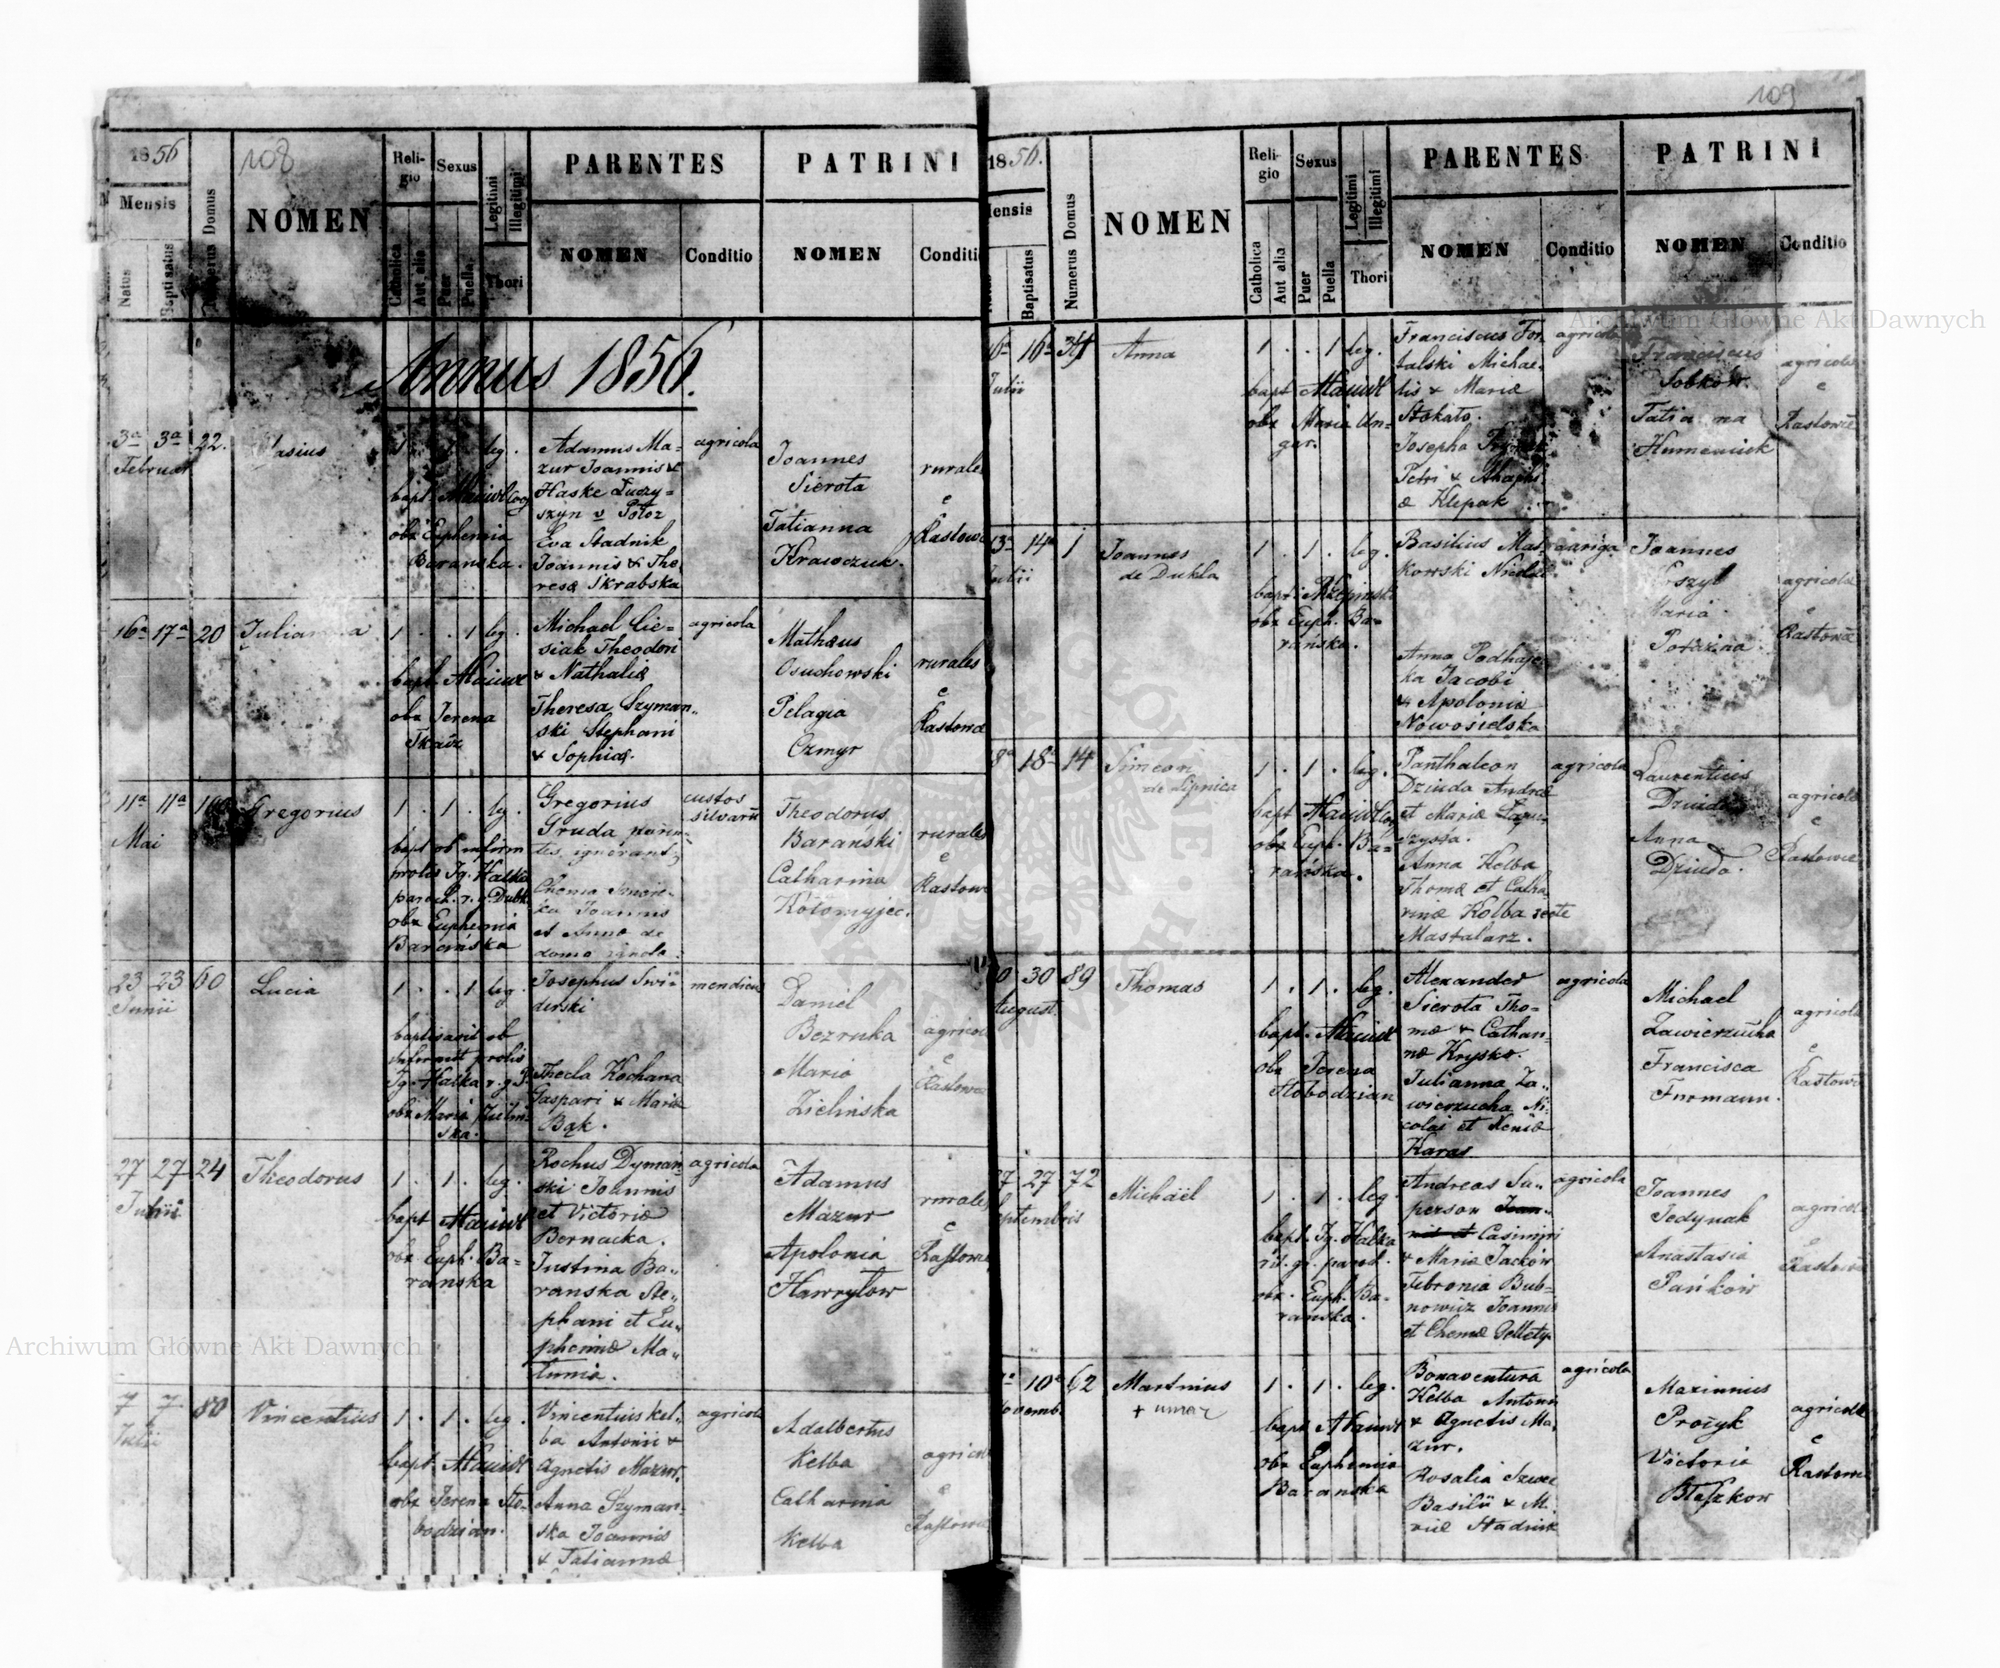 108
1856
Mensis
Natus
Baptisatus
Numerus Domus
NOMEN
Religio
Catholica
Aut alia
Sexus
Puer
Puella
Legitimi
Illegitimi
Thori
PARENTES
NOMEN
Conditio
PATRINI
NOMEN
Conditi
Annus 1856.
3a 3a 22.
Februar
1 . 1 . leg.
Adamus Ma-
zur Joannis &
Haske
Eva Stadnik
Joannis & The
resæ Skrabska
agricola
Joannes
Sierota
Tatianna
Krawczuk.
rurales
e
Rastow
obs Euphemia
Baranska.
16a 17a 20
Julianna
1 . . 1 leg.
obs Terena
Tkacz
Michael Cie-
siak Theodori
& Nathaliæ
Theresa Szyman-
ski Stephani
& Sophiæ.
agricola
Mathæus
Osuchowski
Pelagia
Czmyr
rurales
e
Rastowce
11a 11a
Mai
Gregorius
1 . 1 . leg.
bapt ob infirm
prolis Ig. Halka
paroch. r. g. Dubk
obs Euphemia
Baranska
Gregorius
Gruda paren-
tes ignorant
Joannis
et Annæ de
domo
custos
silvarū
Theodorus
Baranski
Catharina
Kołomyjec.
rurales
e
Rastow
23 23 60
Junii
Lucia
1 . . 1 leg.
baptisavit ob
infirmit prolis
Ig. Halka r. g. P.
obs Maria Zielin-
ska.
Josephus Swi-
derski
Thecla Kochana
Gaspari & Mariæ
Bąk.
mendicus
Daniel
Bezruka
Maria
Zielińska
agricol
e
Rastowce
27 27 24
Theodorus
1 . 1 . leg.
obs Euph. Ba-
ranska
Rochus Dyman-
ski Joannis
et Victoriæ
Bernacka.
Justina Ba-
ranska Ste-
phani et Eu-
phemiæ Ma-
agricola
Adamus
Mazur
Apolonia
Hawrylow
rurales
e
Rastowce
7 7 80
Julii
Vincentius
1 . 1 . leg.
obs Terena Slo-
bodzian.
Vincentius Kel-
ba Antonii &
Agnetis Mazur.
Anna Szyman-
ska Joannis
& Tatiannæ
agricola
Adalbertus
Kelba
Catharina
Kelba
agricol
e
Rastowce
109
1856.
ensis
Baptisatus
Numerus Domus
NOMEN
Religio
Catholica
Aut alia
Sexus
Puer
Puella
Legitimi
Illegitimi
Thori
PARENTES
NOMEN
Conditio
PATRINI
NOMEN
Conditio
6a 16a 34
Julii
Anna
1 . . 1 leg.
obs Maria Un-
gar.
Franciscus For-
talski Michae-
lis & Mariæ
Stokato.
Josepha
Petri &
æ Klepak
agricola
Franciscus
Sobkow.
Tatianna
Humeniuk
agricolæ
e
Rastowce
13a 14a 1
Julii
Joannes
de Dukla
1 . 1 . leg.
obs Euph. Ba-
ranska.
Basilius Mat-
kowski Nicolai
Anna Podhaje-
ka Jacobi
& Apolonia
Nowosielska
auriga
Joannes
Maria
agricolæ
e
Rastowce
8a 18a 14
Simeon
de Lipnica
1 . 1 . leg.
obs Euph. Ba-
ranska.
Panthaleon
Dziuda Andreæ
et Mariæ
Anna Kelba
Thomæ et Catha
rinæ Kolba recte
Mastalarz.
agricola
Laurenticis
Dziuda
Anna
Dziuda.
agricolæ
e
Rastowce
0 30 89
August.
Thomas
1 . 1 . leg.
obs Terena
Slobodzian
Alexander
Sierota Tho-
mæ & Cathari-
næ Krysko.
Julianna Za-
wierzucha Ni-
colai et Xeniæ
Karas
agricola
Michael
Zawierzucha
Francisca
Furmann.
agricolæ
e
Rastowce
27 27 72
ptembris
Michaël
1 . 1 . leg.
bapt. Ig. Halka
rit. gr. paroch.
obs. Euph. Ba-
ranska.
Andreas Su-
person Joan-
nis et Casimiri
& Mariæ Jacków
Febronia Bub-
nowicz Joannis
agricola
Joannes
Jedynak
Anastasia
Pańkow
agricolæ
e
Rastowce
10a 62
ovemb.
Martinus
1 . 1 . leg.
obs Euphemia
Baranska
Bonaventura
Kelba Antonii
& Agnetis Ma-
zur.
Rosalia
Basilii & M.
riæ Stadnik
agricola
Maximius
Procyk
Victoria
Błaszkow
agricolæ
e
Rastowce
Archiwum Główne Akt Dawnych
Archiwum Główne Akt Dawnych